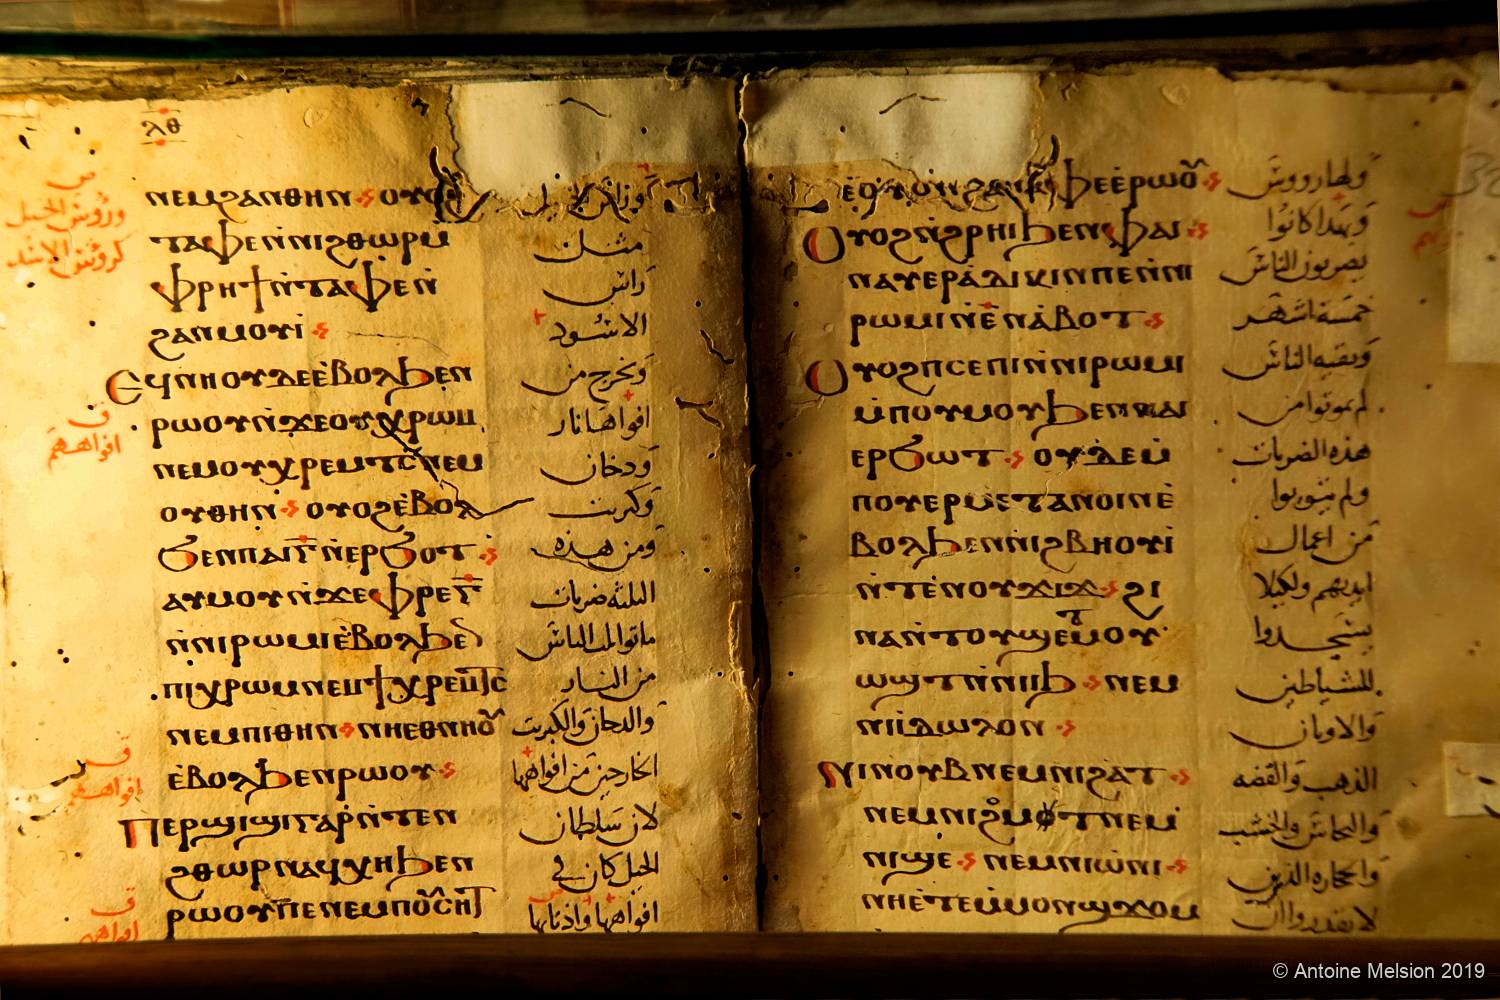 ⲗⲑ
ⲛⲉⲙϩⲁⲛⲑⲏⲛ
ⲧⲁⲫⲉⲛ̀ⲛⲓϩⲑⲱⲣⲙ
ⲫⲣⲏϯⲛ̀ⲧⲁⲫⲉⲛ̀
ϩⲁⲛⲙⲟⲩⲓ̀
ⲉϥⲛⲏⲟⲩⲇⲉⲉ̀ⲃⲟⲗϧⲉⲛ
ⲣⲱⲟⲩⲛ̀ϫⲉⲟⲩⲭⲣⲱⲙ
ⲛⲉⲙⲟⲩⲭⲣⲉⲙⲧⲥ ⲛⲉⲙ
ⲟⲩⲑⲏⲛ ⲟⲩⲟϩⲉ̀ⲃⲟⲗ
ϭⲉⲛⲡⲁⲓⲅ̅ⲛ̀ⲉⲣϭⲟⲧ
ⲁⲩⲙⲟⲩⲛ̀ϫⲉⲫⲣⲉⲅ̅
ⲛ̀ⲛⲓⲣⲱⲙⲓⲉ̀ⲃⲟⲗϧⲉⲛ
ⲡⲓⲭⲣⲱⲙⲛⲉⲙϯⲭⲣⲉⲙⲧⲥ
ⲛⲉⲙⲡⲓⲑⲏⲛ ⲛⲏⲉⲑⲛⲏⲟⲩ
ⲉ̀ⲃⲟⲗϧⲉⲛⲣⲱⲟⲩ
ⲡⲉⲣϣⲓϣⲓⲅⲁⲣⲛ̀ⲧⲉⲛ
ϩⲑⲱⲣⲛⲁϥⲭⲏϧⲉⲛ
ⲣⲱⲟⲩⲡⲉⲛⲉⲙⲡⲟⲩⲥⲏⲧ
مثل
راس
الاسود
وتخرج من
افواهها نار
ودخان
وكبريت
ومن هذه
الثلثة ضربات
ماتوا ثلث الناس
من النار
والدخان والكبريت
الخارجين من افواهها
لان سلطان
الخيل كان في
افواهها واذنابها
وروس الخيل
كروس الاسد
افواههم
افواههم
ϧⲉⲉ̀ⲣⲱⲟⲩ
ⲟⲩⲟϩⲛ̀ϩⲣⲏⲓϧⲉⲛⲫⲁⲓ
ⲛⲁⲩⲉⲣⲁ̀ⲇⲓⲕⲓⲛⲡⲉⲛ̀ⲛⲓ
ⲣⲱⲙⲓⲛ̀ⲉ̅ⲛⲁ̀ⲃⲟⲧ
ⲟⲩⲟϩⲡⲥⲉⲡⲓⲛ̀ⲛⲓⲣⲱⲙⲓ
ⲙ̀ⲡⲟⲩⲙⲟⲩϧⲉⲛⲛⲁⲓ
ⲉⲣϭⲱⲧ ⲟⲩⲇⲉⲙ̀
ⲡⲟⲩⲉⲣⲙⲉⲧⲁⲛⲟⲓⲛⲉ̀
ⲃⲟⲗϧⲉⲛⲛⲓϩⲃⲏⲟⲩⲓ̀
ⲛ̀ⲧⲉⲛⲟⲩϫⲓϫ ϩⲓ
ⲛⲁⲛ̀ⲧⲟⲩϣⲧⲉⲙⲟⲩ
ⲱϣⲧⲛ̀ⲛⲓⲓϧ ⲛⲉⲙ
ⲛⲓⲓ̀ⲇⲱⲗⲟⲛ
ⲛⲓⲛⲟⲩⲃⲛⲉⲙⲛⲓϩⲁⲧ
ⲛⲉⲙⲛⲓϩⲟⲙⲧⲛⲉⲙ
ⲛⲓϣⲉ ⲛⲉⲙⲛⲓⲱ̀ⲛⲓ
ⲛⲏⲉ̀ⲧⲉⲙ̀ⲙⲟⲛϣϫⲟⲙ
ولها رووس
وبهذا كانوا
يضربون الناس
خمسة اشهر
وبقيه الناس
لم يموتوا من
هذه الضربات
ولم يتوبوا
من اعمال
ايديهم ولكيلا
يسجدوا
للشياطين
والاوثان
الذهب والفضه
والنحاس والخشب
والحجاره الذين
لا يقدرواان
© Antoine Melsion 2019